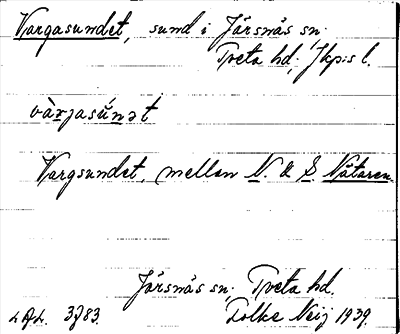 Vargasundet, sund i Järsnäs sn.
Tveta hd, Jkp:s l.
vàrjasúnət
Vargsundet, mellan N. & S. Nätaren.
Järsnäs sn, Tveta hd.
3783. Folke Neij 1939.